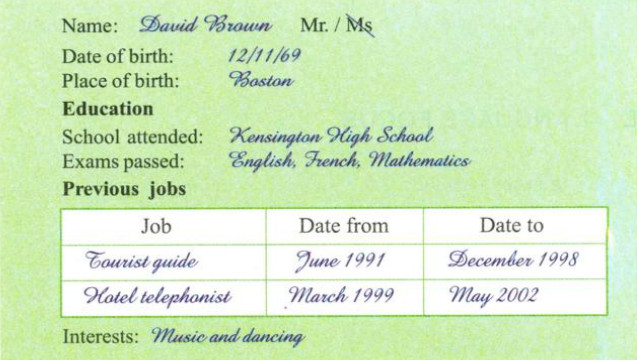 Name: David Brown Mr. / Ms
Date of birth: 12/11/69
Place of birth: Boston
Education
School attended: Kensington High School
Exams passed: English, French, Mathematics
Previous jobs
Job Date from Date to
Tourist guide June 1991 December 1998
Hotel telephonist March 1999 May 2002
Interests: Music and dancing